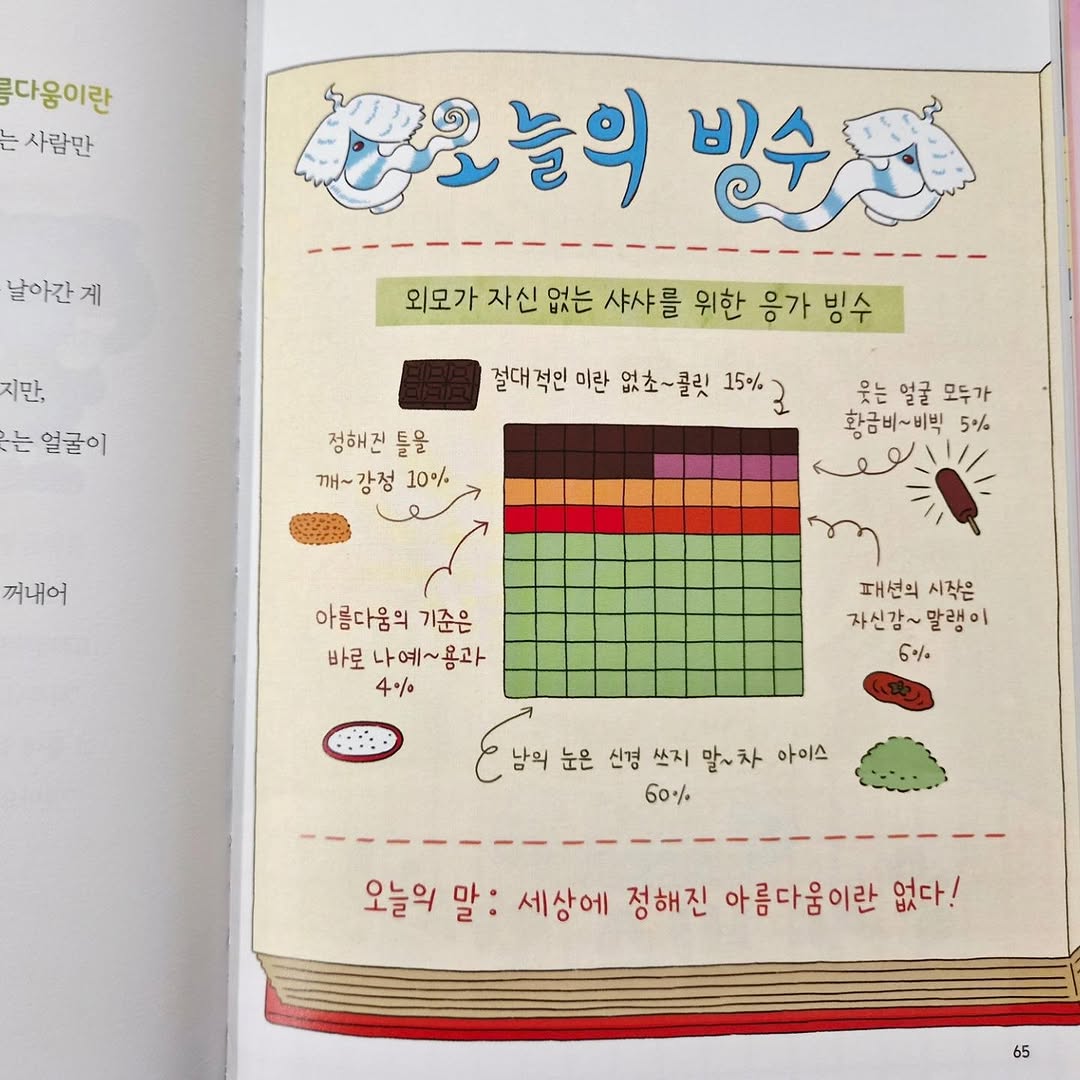 름다움이란
는 사람만
날아간 게
지만,
웃는 얼굴이
꺼내어
오늘의 빙수
외모가 자신 없는 샤샤를 위한 응가 빙수
절대적인 미란 없초~콜릿 15%
웃는 얼굴 모두가
황금비~비빅 5%
정해진 틀을
깨~강정 10%
아름다움의 기준은
바로 나예~용과
4%
패션의 시작은
자신감~말랭이
6%
남의 눈은 신경 쓰지 말~차 아이스
60%
오늘의 말: 세상에 정해진 아름다움이란 없다!
65